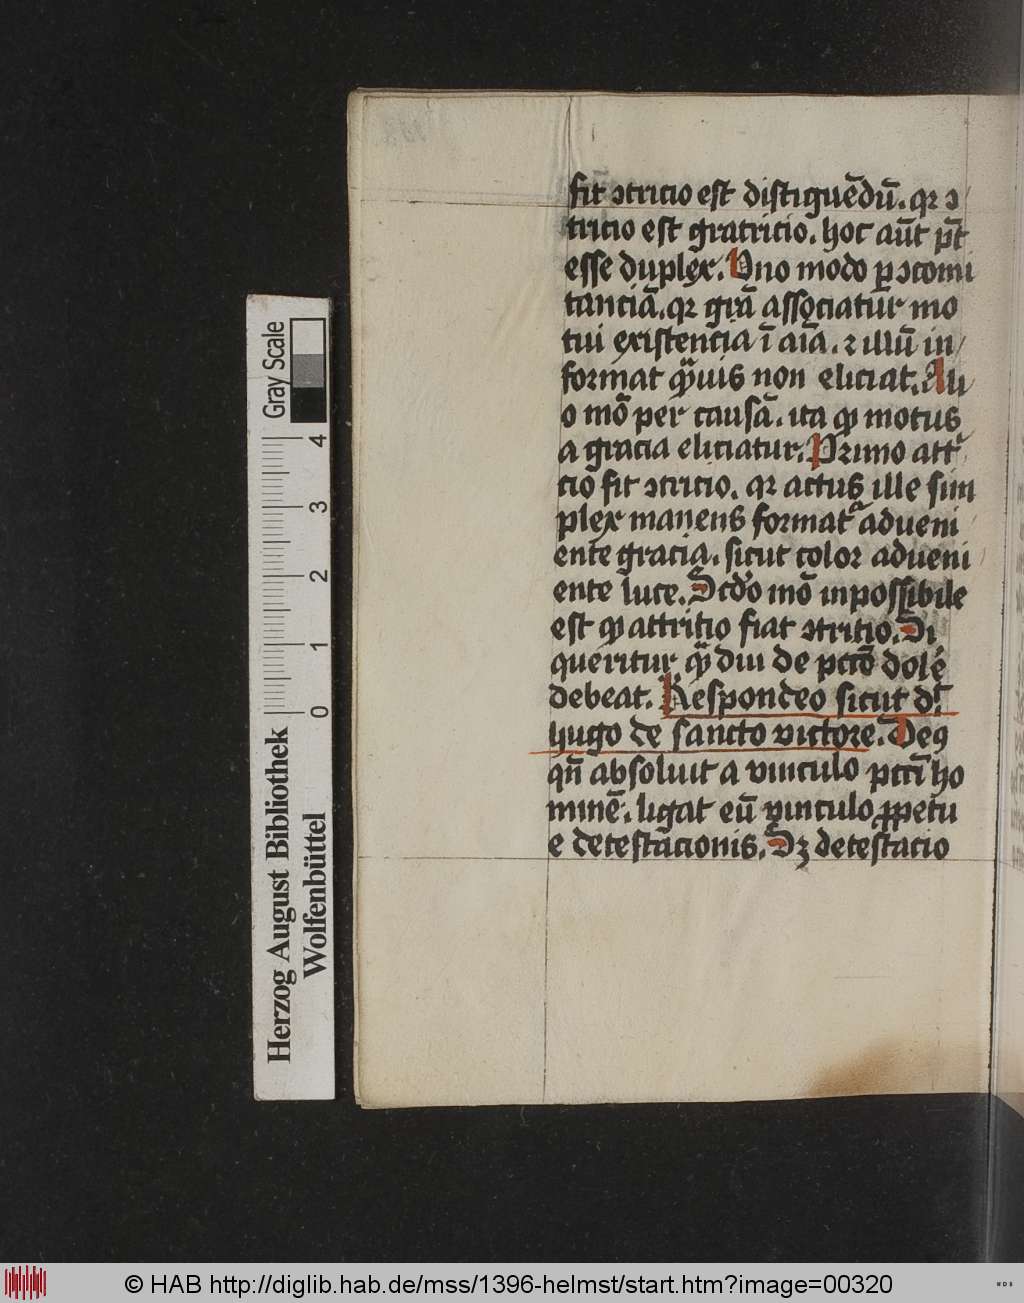 fit ↄtricio est distiguēdū. qr ↄ
tricio est gratricio. hoc aūt pt̄
esse duplex. Uno modo p̱ ↄcomi
tanciā. qr grā associatur̄ mo
tui existencia ī aīa. ⁊ illū in
format qͣuis non eliciat. Ali
o mō per causā. ita ꝙ motus
a gracia eliciatur. Primo att
cio fit ↄtricio. qr actus ille sim
plex manens format᷑ adueni
ente gracia. sicut color adueni
ente luce. Scd̄o mō inpossibile
est ꝙ attritio fiat ↄtritio. Si
queritur qͣ diu de pctō dolē
debeat. Respondeo sicut d͛t
hugo de sancto victore. Deꝯ
qn̄ absoluit a vinculo pctī ho
minē. ligat eū vinculo ꝓpetu
e detestacionis. Sꝫ detestatio
Herzog August Bibliothek
Wolfenbüttel
0 1 2 3 4
Gray Scale
© HAB http://diglib.hab.de/mss/1396-helmst/start.htm?image=00320
WDB